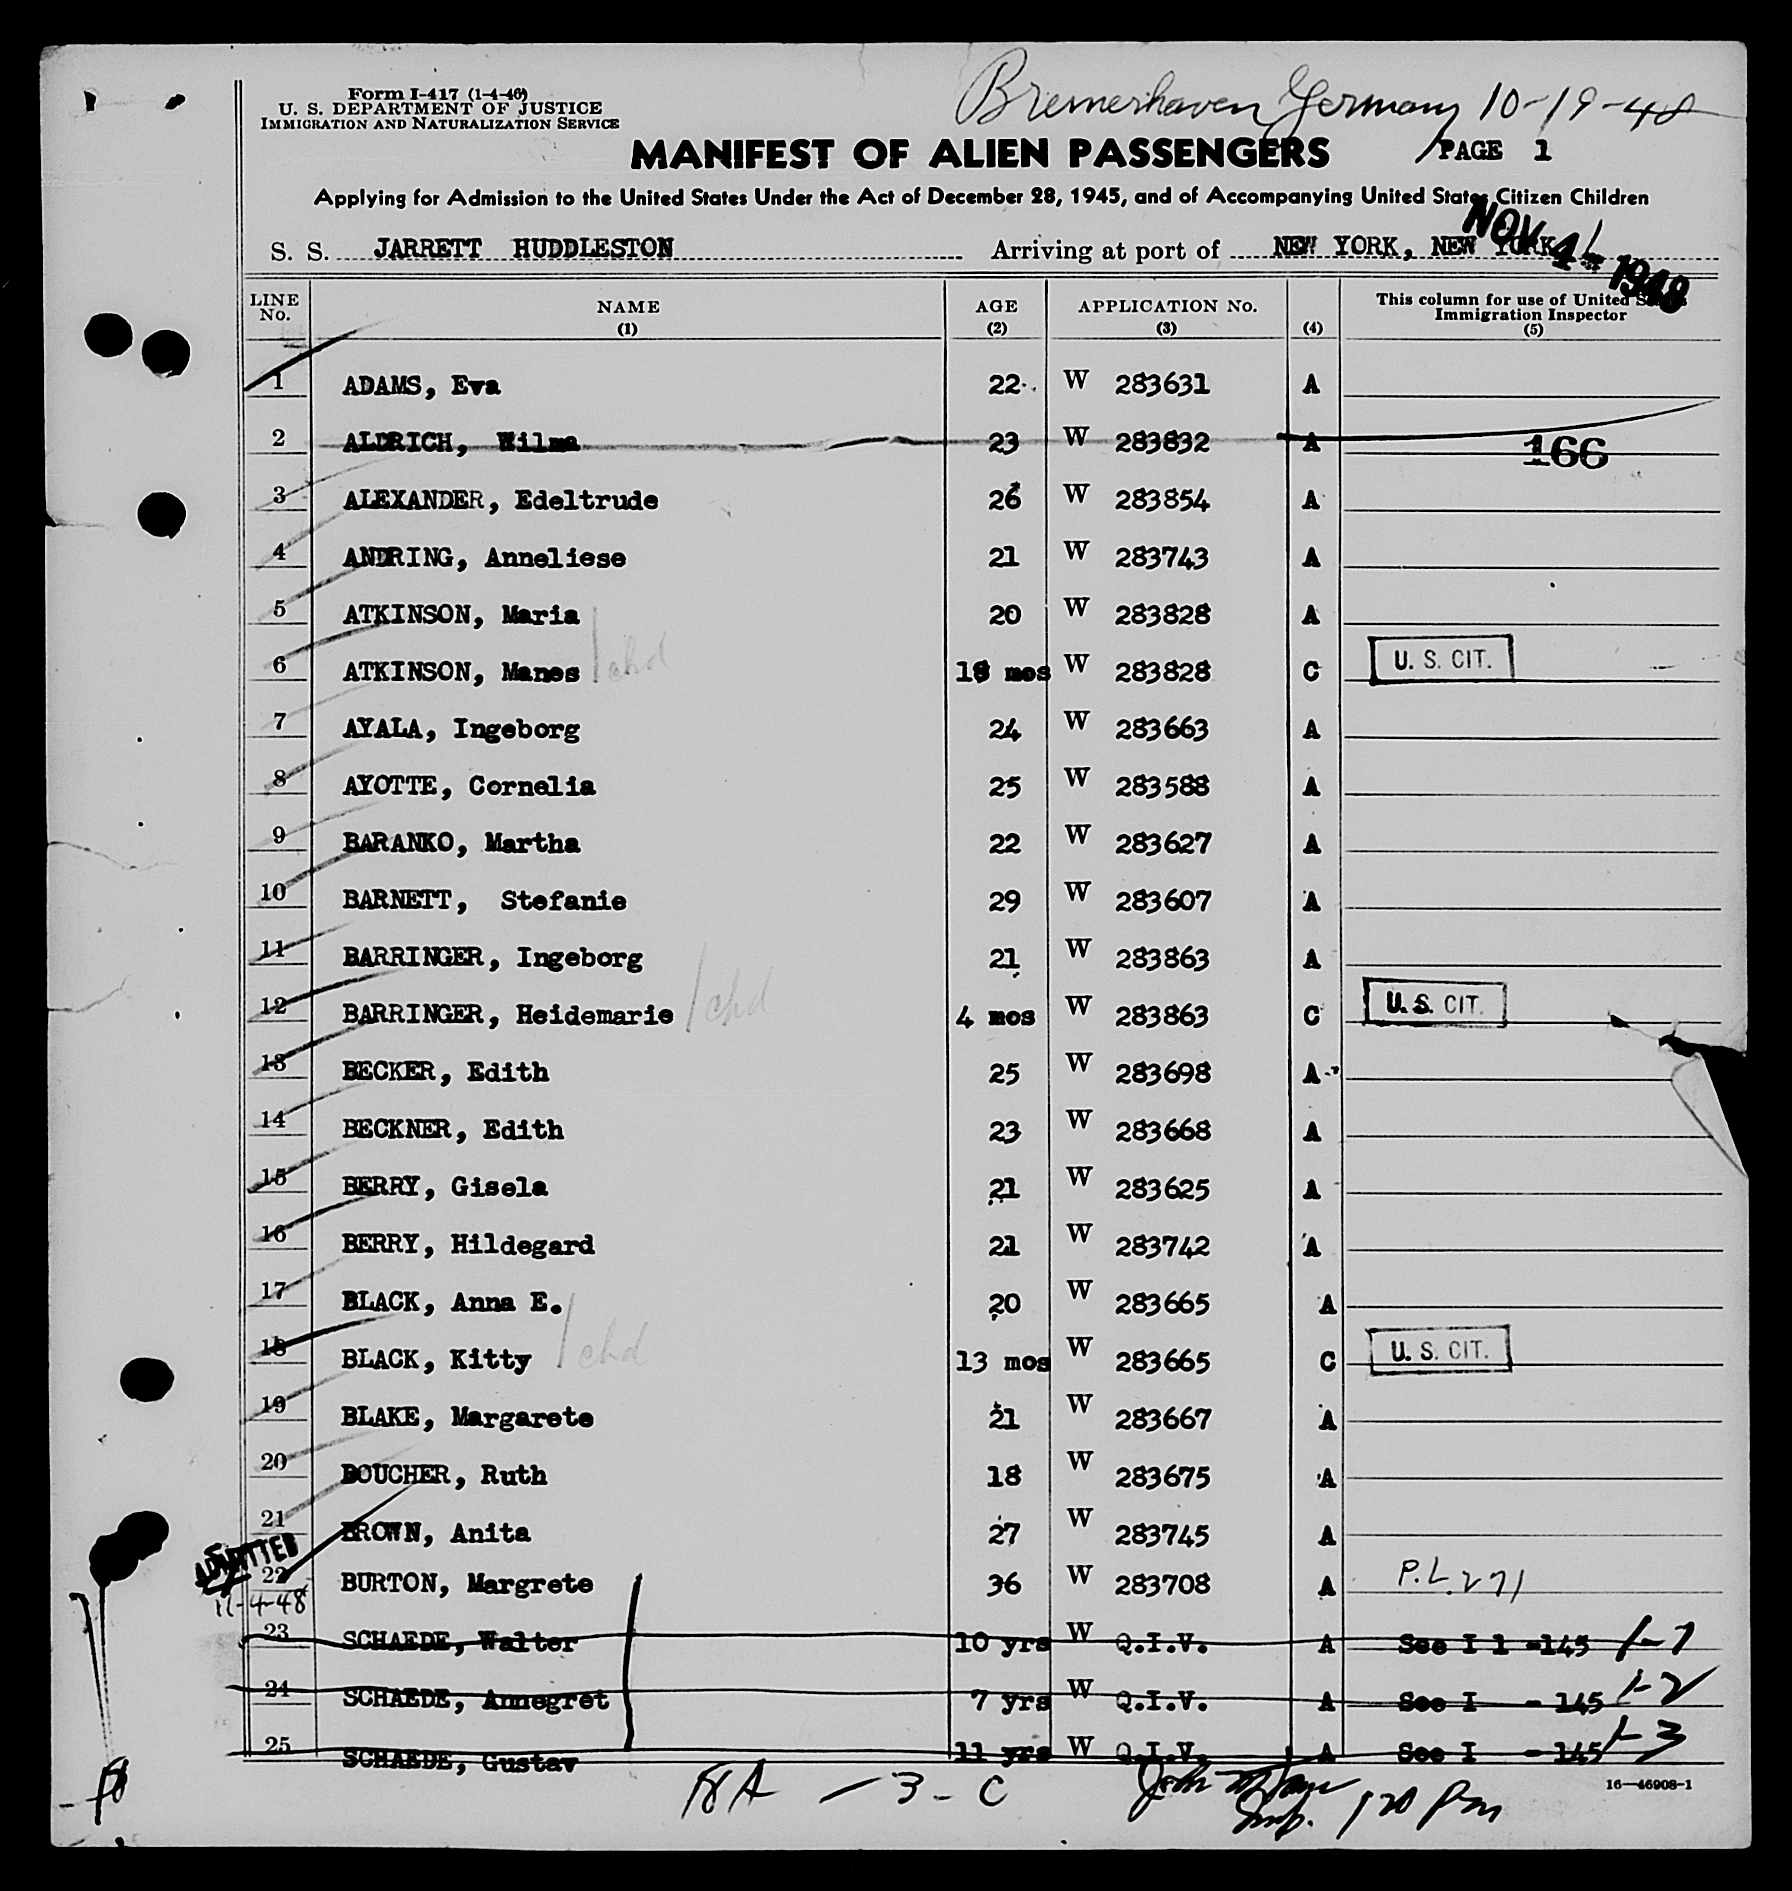 Form I-417 (1-4-46)
U. S. DEPARTMENT OF JUSTICE
IMMIGRATION AND NATURALIZATION SERVICE
Bremerhaven Germany 10-19-48
MANIFEST OF ALIEN PASSENGERS
PAGE 1
Applying for Admission to the United States Under the Act of December 28, 1945, and of Accompanying United States Citizen Children
NOV 4 - 1948
S. S. JARRETT HUDDLESTON Arriving at port of NEW YORK, NEW YORK
LINE No. NAME (1) AGE (2) APPLICATION No. (3) (4) This column for use of United States Immigration Inspector (5)
1 ADAMS, Eva 22 W 283631 A
2 ALDRICH, Wilma 23 W 283832 A 166
3 ALEXANDER, Edeltrude 26 W 283854 A
4 ANDRING, Anneliese 21 W 283743 A
5 ATKINSON, Maria 20 W 283828 A
6 ATKINSON, Manes chd 18 mos W 283828 C U. S. CIT.
7 AYALA, Ingeborg 24 W 283663 A
8 AYOTTE, Cornelia 25 W 283588 A
9 BARANKO, Martha 22 W 283627 A
10 BARNETT, Stefanie 29 W 283607 A
11 BARRINGER, Ingeborg 21 W 283863 A
12 BARRINGER, Heidemarie chd 4 mos W 283863 C U. S. CIT.
13 BECKER, Edith 25 W 283698 A
14 BECKNER, Edith 23 W 283668 A
15 BERRY, Gisela 21 W 283625 A
16 BERRY, Hildegard 21 W 283742 A
17 BLACK, Anna E. 20 W 283665 A
18 BLACK, Kitty chd 13 mos W 283665 C U. S. CIT.
19 BLAKE, Margarete 21 W 283667 A
20 BOUCHER, Ruth 18 W 283675 A
21 BROWN, Anita 27 W 283745 A
ADMITTED
22 BURTON, Margrete 36 W 283708 A P.L. 271
11-4-48
23 SCHAEDE, Walter 10 yrs W Q.I.V. A See I 1 -145 1-1
24 SCHAEDE, Annegret 7 yrs W Q.I.V. A See I - 145 1-2
25 SCHAEDE, Gustav 11 yrs W Q.I.V. A See I - 145 1-3
16—46908-1
18A - 3 - C John Insp. 120 pm